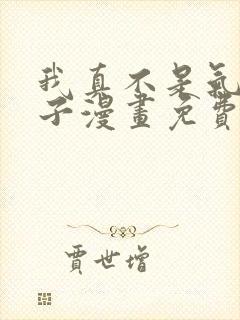 我真不是氣
子漫畫免費
賈世增